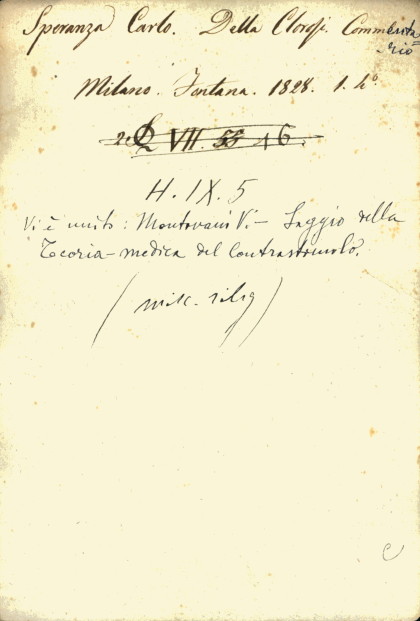 Speranza Carlo. Della Clorosi. Commenta=
rio
Milano. Fontana. 1828. 1. 4°
Q VII. 55 46.
H. IX. 5
Vi è unito: Mantovani V. - Saggio della
Teoria-medica del Controstimolo.
(misc. rileg)
C